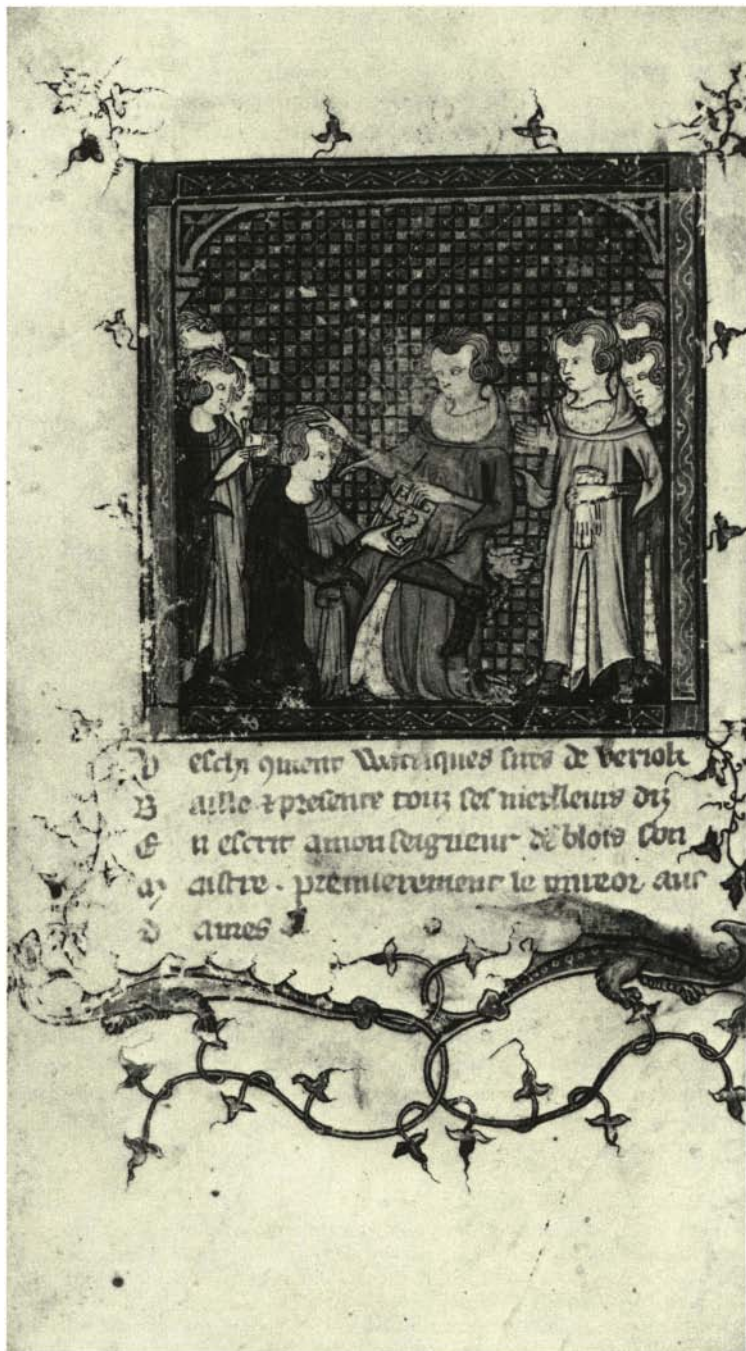 V eschi 9ment Watriques sires de verioli
B aille & presente touz ses meilleurs diz
E n escrit amonseigneur de blois son
M aistre . premierement le mireor aus
D ames